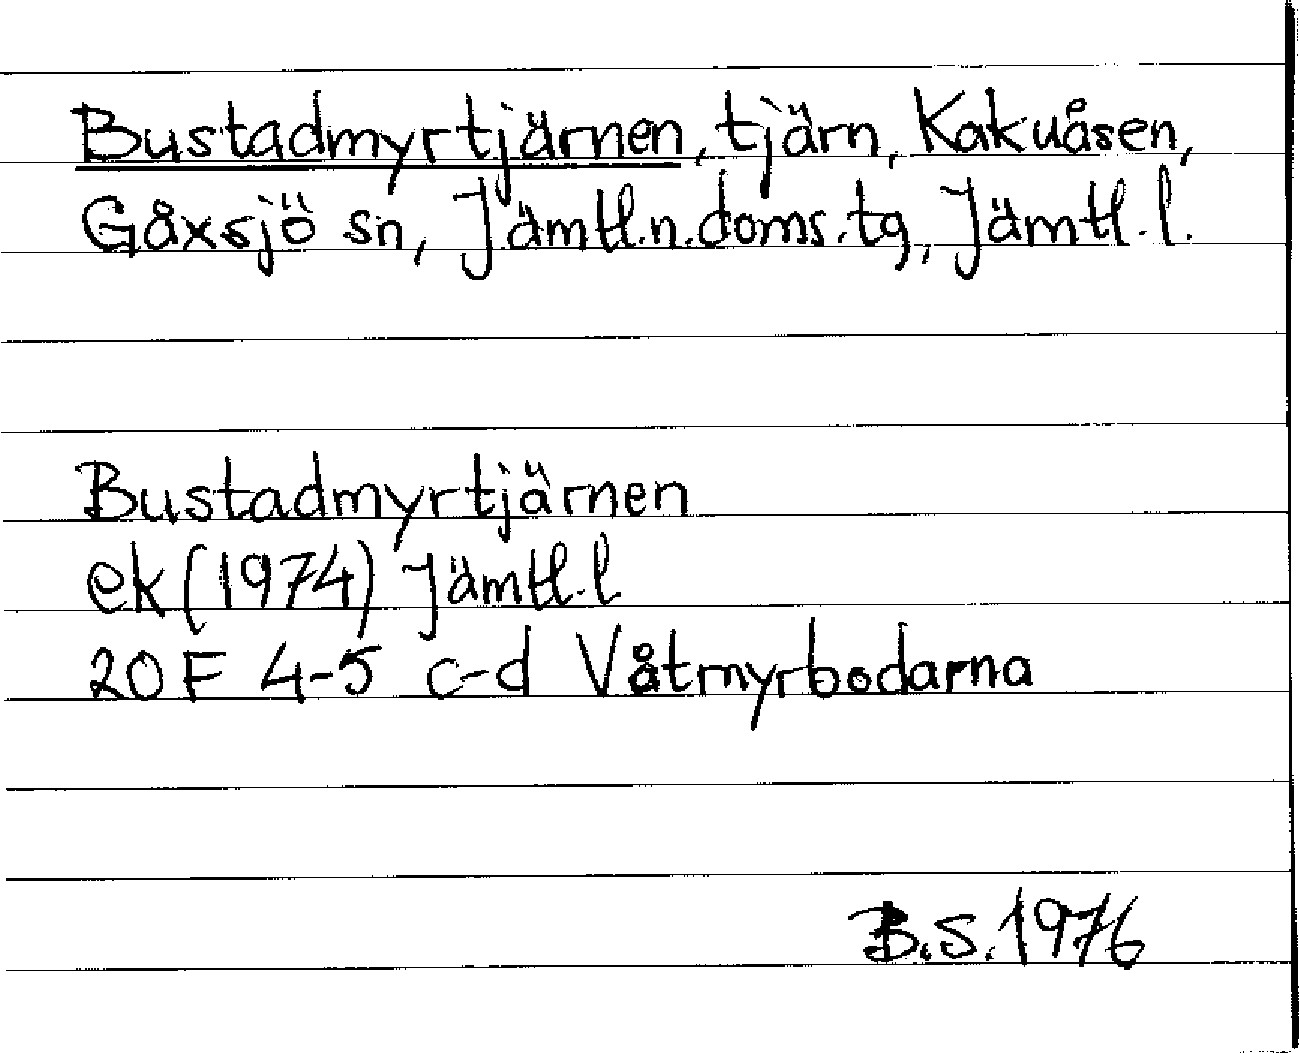 Bustadmyrtjärnen, tjärn, Kakuåsen,
Gåxsjö sn, Jämtl.n.doms.tg, Jämtl.l.
Bustadmyrtjärnen
ek (1974) Jämtl.l
20F 4-5 c-d Våtmyrbodarna
B.S. 1976